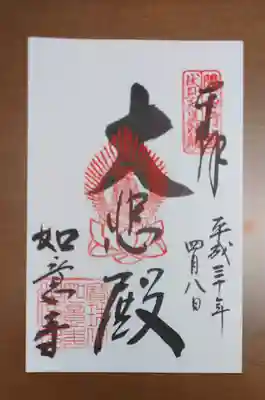 奉拝
平成三十年
四月八日
大悲殿
如意寺